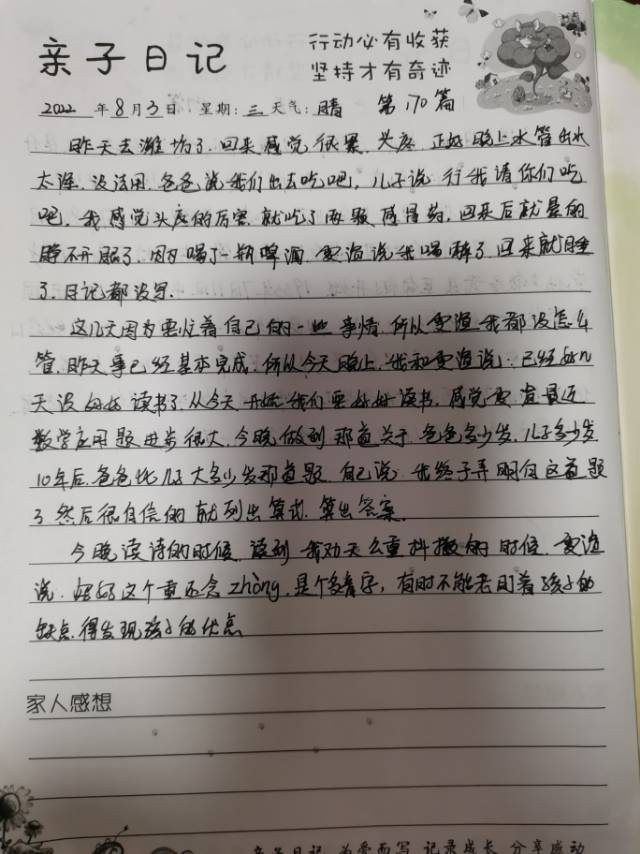 亲子日记
行动必有收获
坚持才有奇迹
2022 年 8 月 3 日 星期: 三 天气: 晴 第 170 篇
昨天去潍坊了.回来感觉很累.头疼.正好晚上水管出水
太涩.没法用.爸爸说我们出去吃吧,儿子说行我请你们吃
吧,我感觉头疼的厉害就吃了两颗感冒药,回来后就是的
睁不开眼了.因为喝了一瓶啤酒.说我喝醉了.回来就睡
了.日记都没写.
这几天因为要忙着自己的一些事情.所以我都没怎么
管.昨天事已经基本完成.所以今天晚上.我和说:已经好几
天没好好读书了.从今天开始我们要好好读书.感觉最近
数学应用题进步很大.今晚做到那道关于爸爸多少岁.儿子多少岁
10年后.爸爸比儿子大多少岁那道题.自己说:我终于弄明白这道题
了.然后很自信的就列出算式.算出答案.
今晚读诗的时候.读到我劝天公重抖擞的时候.
说.妈妈这个重还念zhòng.是个多音字,有时不能老盯着孩子的
缺点.得发现孩子的优点
家人感想
亲子日记 为爱而写 记录成长 分享感动